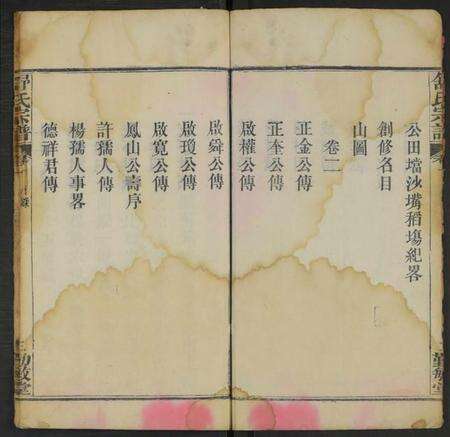 舒氏宗譜
公田壋沙嘴稻塲紀畧
創修名目
山圖
卷二
正金公傳
正奎公傳
啟權公傳
啟舜公傳
啟瓊公傳
啟寬公傳
鳳山公壽序
許孺人傳
楊孺人事畧
德祥君傳
舒氏宗譜
敦堂